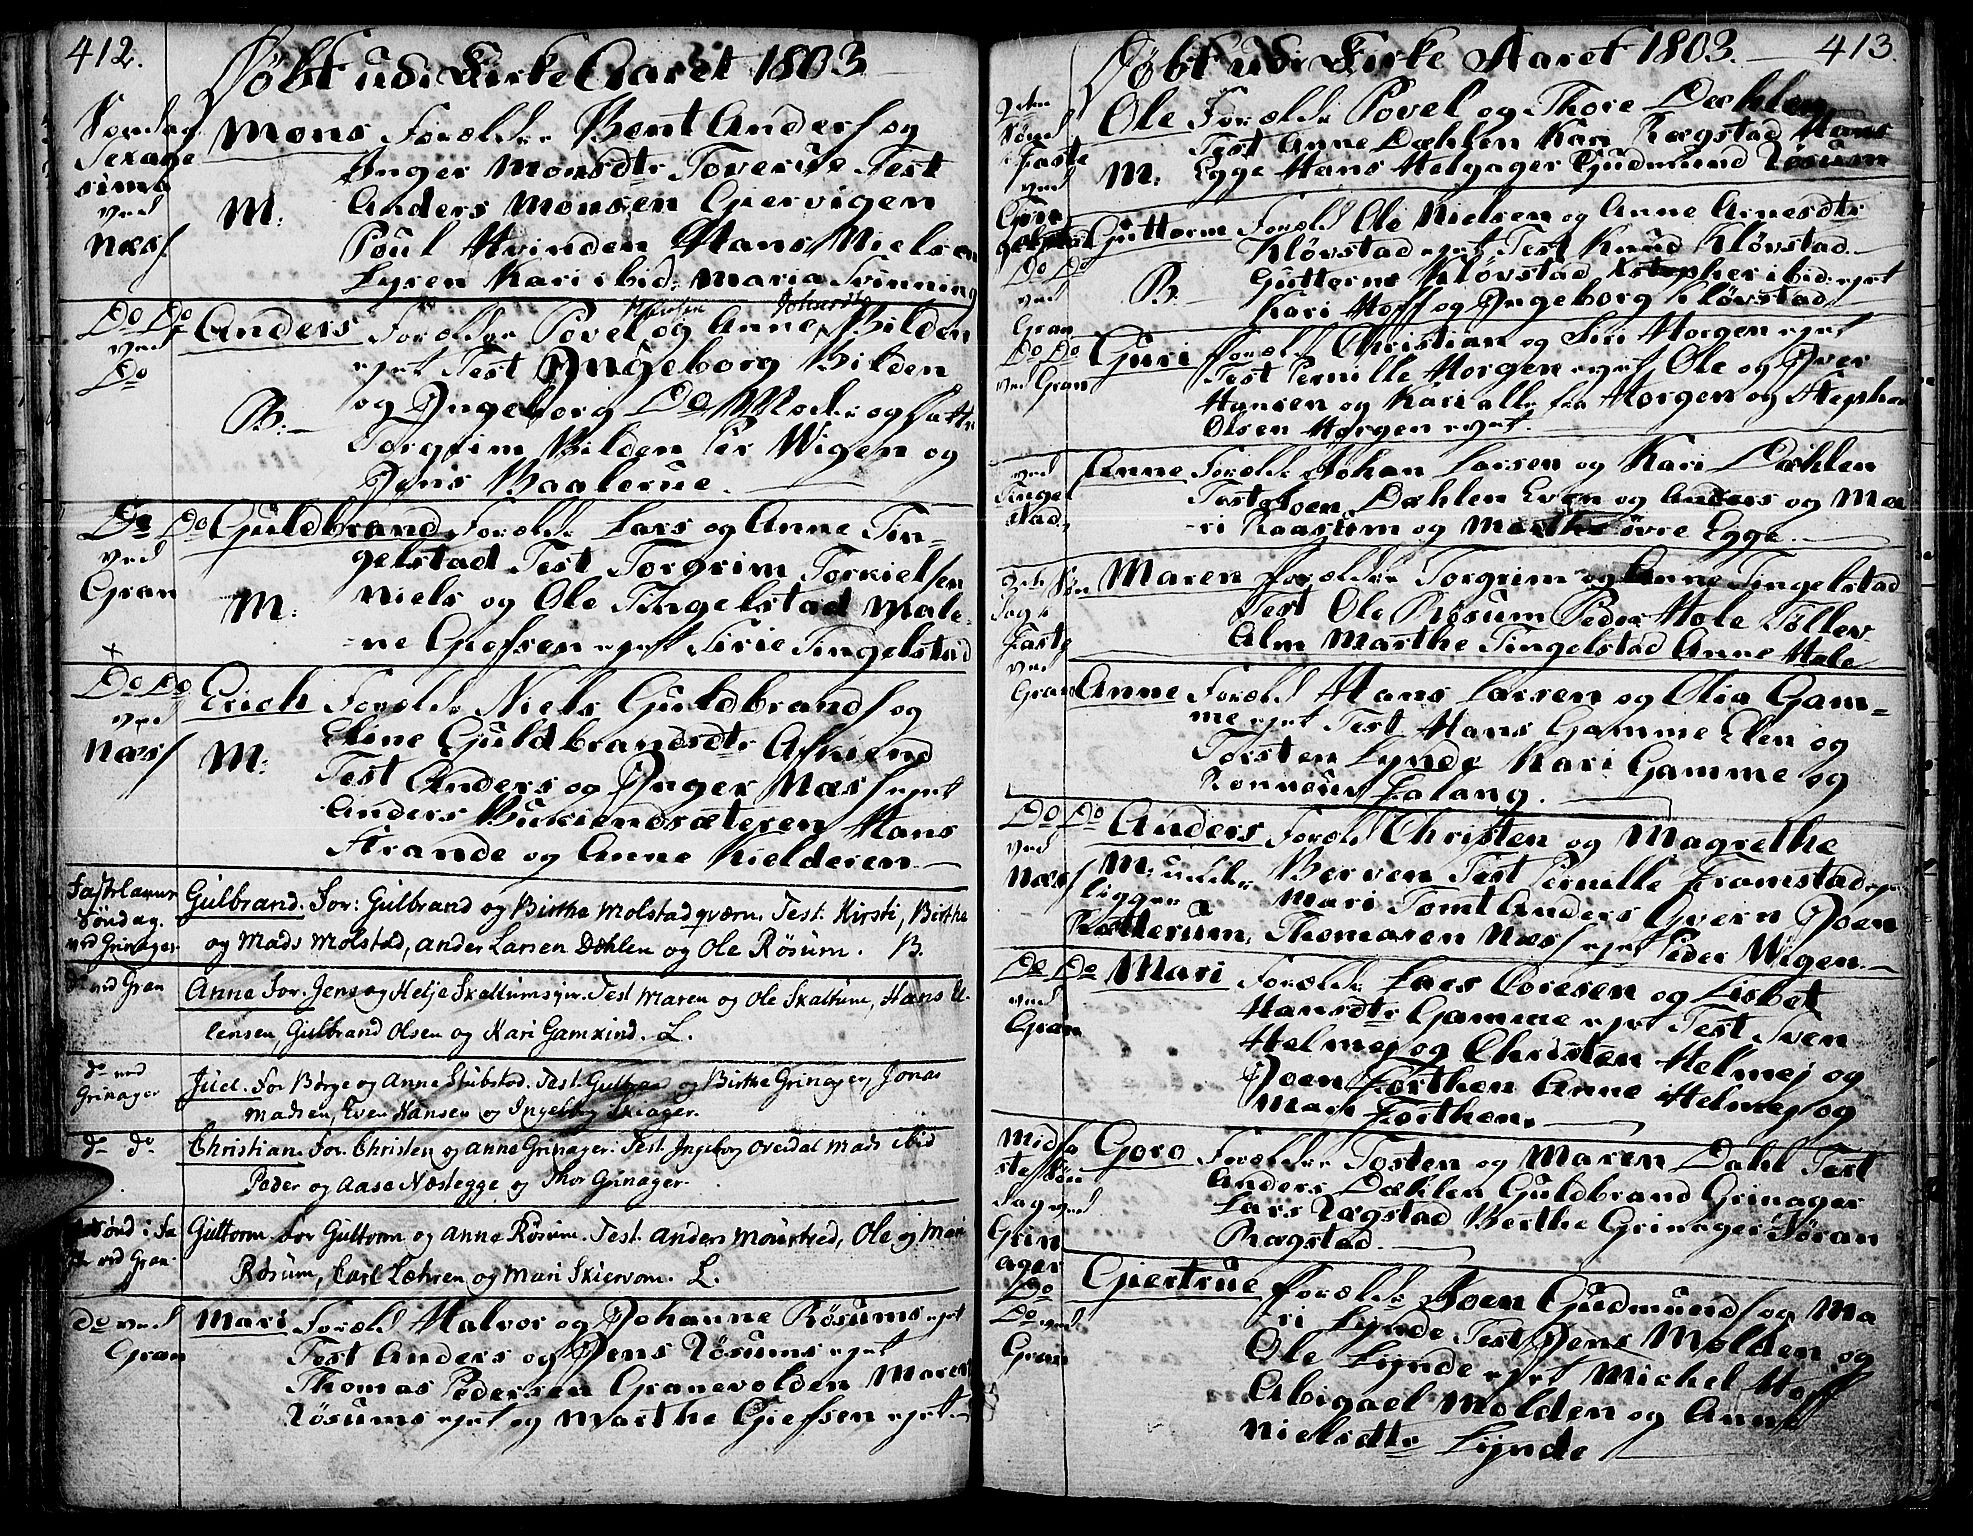 412.
Döbt udi Kirke Aaret 1803
Söndag Sexagesima ved Næss
Mons Forældr Bent Anders og
Inger Monsdtr Toverue Test
M: Anders Monsen Giervigen
Poul Hvinden Hans Nielsen
Lysen Kari ibid: Maria Svinning
Do Do ved Do
Nielsen Johansdtr
Anders Forældr Povel og Anne Bilden
ejet Test Ingeborg Bilden
B. og Ingeborg Do Moder og
Torgrim Bilden Per Wigen og
Jens Baalerue.
Do Do ved Gran
Guldbrand Foreld Lars og Anne Tin-
gelstad Test Torgrim Torkielsen
M: Niels og Ole Tingelstad Male-
ne Giefsen ejet Sirie Tingelstad
Do Do ved Næss
Erich Foreld. Niels Guldbrands og
M: Eline Guldbrandsdtr Askiend
Test Anders og Inger Næss ejet
Anders Bukiendsæteren Hans
Strande og Anne Kielderen
Fastelavns Söndag. ved Grinager
Gulbrand. For: Gulbrand og Birthe Molstadqværn. Test. Kirsti, Birthe
og Mads Molstad, Ander Larsen Dæhlen og Ole Rösum. B.
do ved Gran
Anne For. Jens og Helje Skattumsejer. Test Maren og Ole Skattum, Hans El-
lensen, Gulbrand Olsen og Kari Gamkind. L.
do ved Grinager
Juel. For Börge og Anne Stubstad. Test. Gulbrand og Birthe Grinager, Jonas
Madsen, Even Hansen og Ingeborg Skiager.
do do
Christian. For. Christen og Anne Grinager. Test Ingeborg Overdal Mads ibid
Peder og Aase Næstegge og Thor Grinager.
Sönd i Fa ved Gran
Guttorm For Guttorm og Anne Rösum. Test. Anders Moursted, Ole og Mari
Rösum, Carl Læhren og Mari Skiervom. L.
do ved Gran
Mari Foreld Halvor og Johanne Rösums ejet
Test Anders og Jens Rösums ejet
Thomas Pedersen Granevolden Maren
Rösums ejet og Marthe Giefsen ejet
413.
Döbt udi Kirke Aaret 1803.
2den Sönd i Faste ved
Ole Foreldr Povel og Thore Dæhlen
Test Anne Dæhlen Kari Rægstad Hans
M: Egge Hans Helgager Gudmund Rösum
Guttorm Foreld Ole Nielsen og Anne Arnesdtr
Klövstad ejet Test Knud Klövstad
Do Do ved Gran
B. Gutterne Klövstad Kstopher ibid ejet
Kari Hoff og Ingeborg Klövstad
Do Do ved Gran
Guri Foreld Christian og Siri Horgen ejet
Test Pernille Horgen ejet Ole og Iver
Hansen og Kari alle fra Horgen og Stephan
Olsen Horgen ejet.
ved Tingelstad
Anne Foreld: Johan Larsen og Kari Dæhlen
Test Dæhlen Even og Anders og Ma-
ri Raastom og Marthe Övre Egge.
Sön i Faste ved Gran
Maren Foreldr Torgrim og Anne Tingelstad
Test Ole Rösum Peder Hole Töllev
Alm Marthe Tingelstad Anne Hole
Anne Foreld Hans Larsen og Olia Gam-
me ejet Test Hans Gamme Elen og
Torsten Lynde Kari Gamme og
Ronneug Falang.
Do Do ved Næss
Anders Foreld Christen og Magrethe
M: Berven Test Pernille Framstad ejet
Mari Tomt Anders Qvern Joen
Ratterum, Thomasen Næss ejet Peder Wigen.
Do Do ved Gran
Mari Foreldr Lars Coresen og Lisbet
Hansdtr Gamme ejet Test Sven
Helmej og Christen Helmej og
Joen Forthen Anne Helmej og
Mari Forthen.
Midfaste Söndag ved Grinager
Goro Foreldr Tosten og Maren Dahl Test
Anders Dæhlen Guldbrand Grinager
Lars Rægstad Berthe Grinager Söran
Rægstad.
Do Do ved Gran
Giertrue Foreld Joen Gudmunds og Ma
ri Lynde Test Jens Molden og
Ole Lynde ejet Michel Hoff
Abigael Molden og Anne
Nielsdtr Lynde